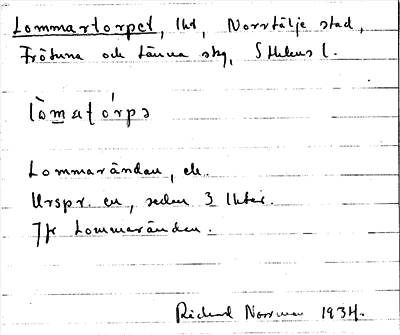 Lommartorpet, lht, Norrtälje stad,
Frötuna och Länna skg, Sthlms l.
lòmaṭórpə
Lommarändan, ek.
Urspr. en, sedan 3 lhter.
Jfr Lommaränden.
Rickard Norrman 1934.